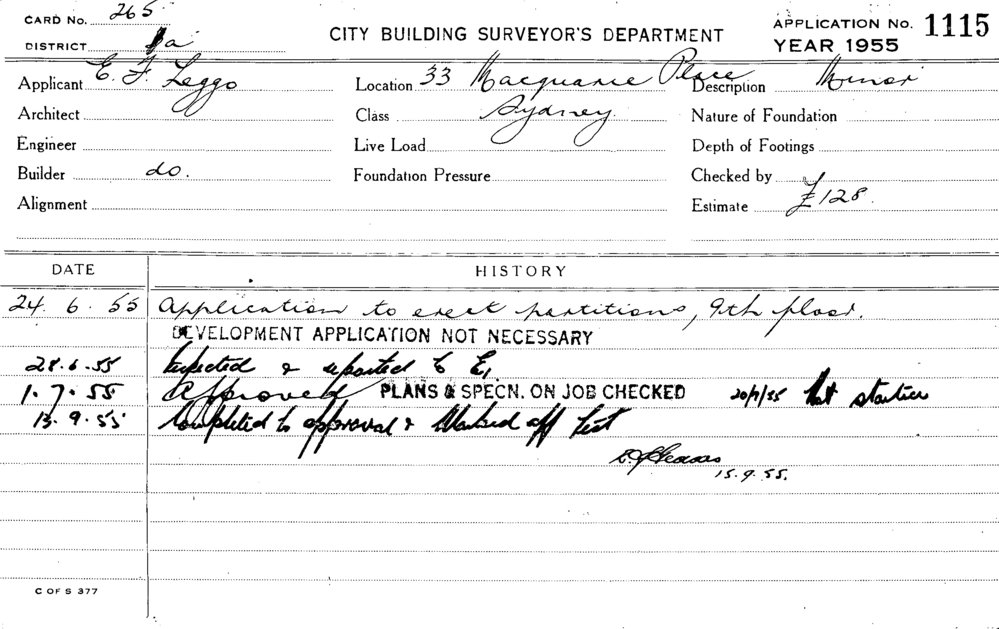 CARD No. 265
CITY BUILDING SURVEYOR'S DEPARTMENT
APPLICATION No. 1115
DISTRICT 1a
YEAR 1955
Applicant E. F. Leggo
Location 33 Macquarie Place
Description Minor
Architect
Class Sydney
Nature of Foundation
Engineer
Live Load
Depth of Footings
Builder do.
Foundation Pressure
Checked by
Alignment
Estimate £128.
DATE HISTORY
24. 6. 55 Application to erect partitions, 9th floor.
DEVELOPMENT APPLICATION NOT NECESSARY
28.6.55 Inspected & reported to E,
1. 7. 55 Approved PLANS & SPECN. ON JOB CHECKED 20/7/55 Not started
13. 9. 55 Completed to approval & Marked off list
15.9.55.
C OF S 377